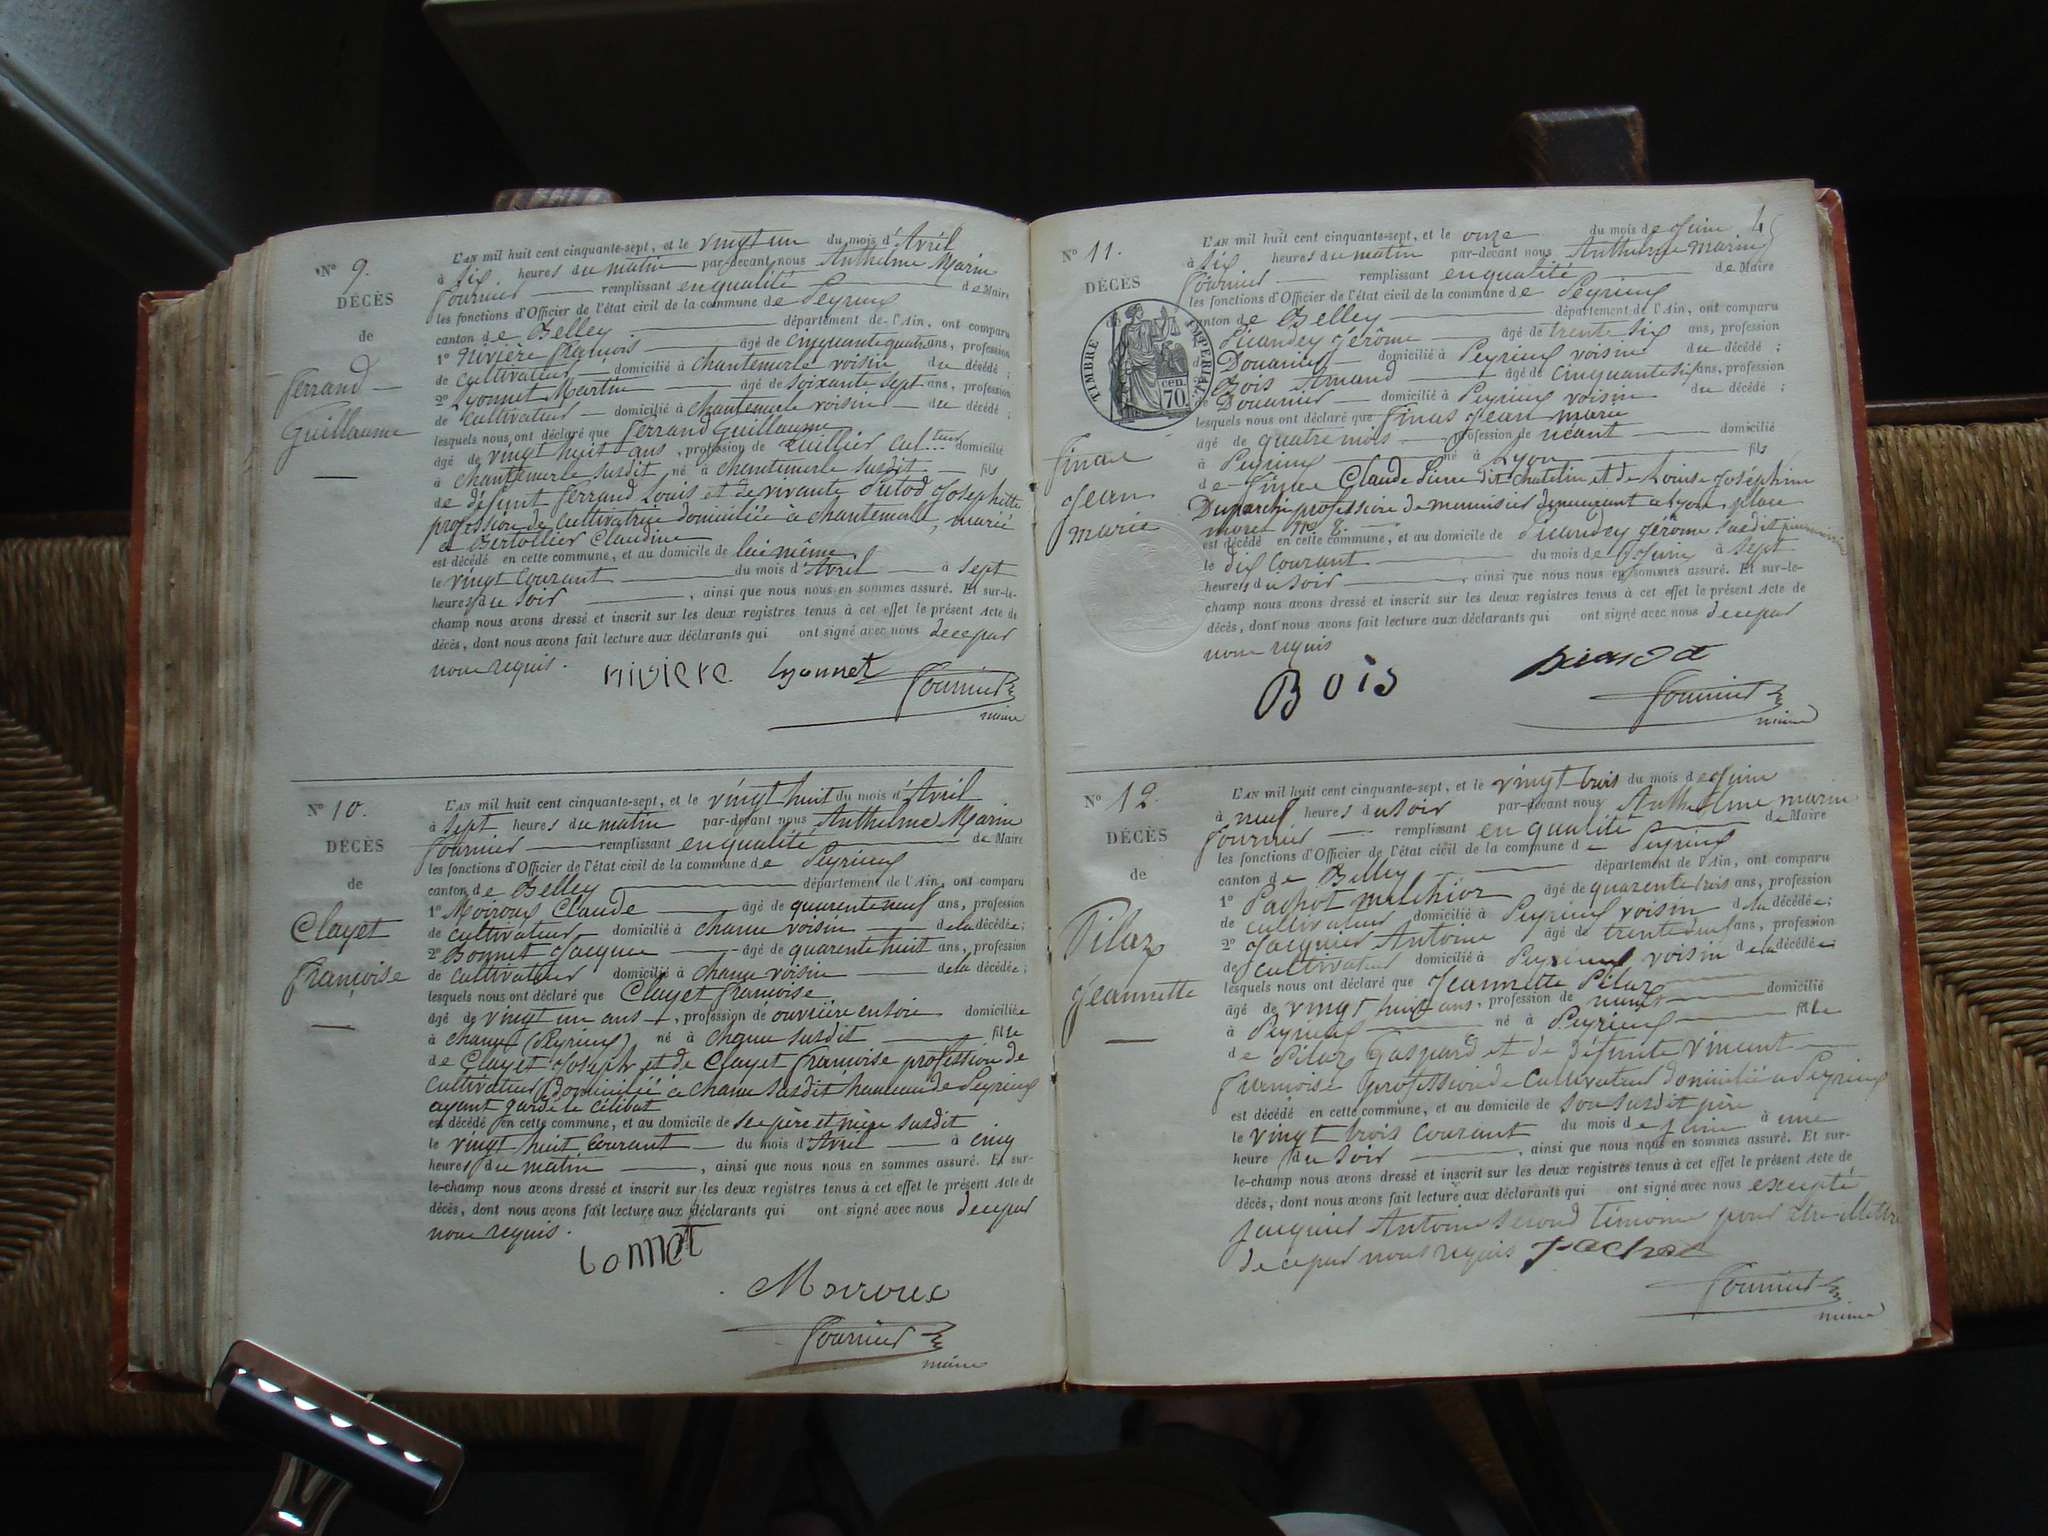 N° 9.
DÉCÈS
de
Ferrand
Guillaume
L'AN mil huit cent cinquante-sept, et le vingt un du mois d'Avril
à six heures du matin par-devant nous Anthelme Marin
Fournier remplissant en qualité de Maire
les fonctions d'Officier de l'état civil de la commune de Peyrieux
canton de Belley département de l'Ain, ont comparu
1° Rivière François âgé de cinquante quatre ans, profession
de cultivateur domicilié à Chantemerle voisin du décédé ;
2° Lyonnet Martin âgé de soixante sept ans, profession
de cultivateur domicilié à Chantemerle voisin du décédé ;
lesquels nous ont déclaré que Ferrand Guillaume
âgé de vingt huit ans, profession de domicilié
à Chantemerle susdit né à Chantemerle susdit fils
de défunt Ferrand Louis et de vivante Putod Josephette
profession de cultivatrice domiciliée à Chantemerle, marié
à Bertollier Claudine
est décédé en cette commune, et au domicile de lui même
le vingt courant du mois d'Avril à sept
heures du soir, ainsi que nous nous en sommes assuré. Et sur-le-
champ nous avons dressé et inscrit sur les deux registres tenus à cet effet le présent Acte de
décès, dont nous avons fait lecture aux déclarants qui ont signé avec nous de ce par
nous requis.
Rivière Lyonnet Fournier
maire
N° 10.
DÉCÈS
de
Clayet
Françoise
L'AN mil huit cent cinquante-sept, et le vingt huit du mois d'Avril
à sept heures du matin par-devant nous Anthelme Marin
Fournier remplissant en qualité de Maire
les fonctions d'Officier de l'état civil de la commune de Peyrieux
canton de Belley département de l'Ain, ont comparu
1° Moiroux Claude âgé de quarente neuf ans, profession
de cultivateur domicilié à voisin de la décédée ;
2° Bonnet Jacques âgé de quarente huit ans, profession
de cultivateur domicilié à voisin de la décédée ;
lesquels nous ont déclaré que Clayet Françoise
âgé de vingt un ans, profession de ouvrière en soie domiciliée
à (Peyrieux) né à susdit fille
de Clayet Joseph et de Clayet Françoise profession de
cultivateurs domicilié à susdit hameau de Peyrieux
ayant gardé le célibat
est décédé en cette commune, et au domicile de ses père et mère susdit
le vingt huit courant du mois d'Avril à cinq
heures du matin, ainsi que nous nous en sommes assuré. Et sur-
le-champ nous avons dressé et inscrit sur les deux registres tenus à cet effet le présent Acte de
décès, dont nous avons fait lecture aux déclarants qui ont signé avec nous de ce par
nous requis.
Bonnet
Moiroux
Fournier
maire
45
N° 11.
DÉCÈS
de
TIMBRE IMPÉRIAL
70 cen.
Finas
Jean
Marie
L'AN mil huit cent cinquante-sept, et le onze du mois de Juin
à six heures du matin par-devant nous Anthelme Marin
Fournier remplissant en qualité de Maire
les fonctions d'Officier de l'état civil de la commune de Peyrieux
canton de Belley département de l'Ain, ont comparu
Jérôme âgé de trente six ans, profession
de Douanier domicilié à Peyrieux voisin du décédé ;
Bois Amand âgé de cinquante six ans, profession
de Douanier domicilié à Peyrieux voisin du décédé ;
lesquels nous ont déclaré que Finas Jean Marie
âgé de quatre mois profession de néant domicilié
à Peyrieux né à Lyon fils
de Finas Claude dit et de Louise Joséphine
profession de menuisier demeurant à Lyon place
n° 8.
est décédé en cette commune, et au domicile de Jérôme susdit
le dix courant du mois de Juin à sept
heures du soir, ainsi que nous nous en sommes assuré. Et sur-le-
champ nous avons dressé et inscrit sur les deux registres tenus à cet effet le présent Acte de
décès, dont nous avons fait lecture aux déclarants qui ont signé avec nous de ce par
nous requis
Bois
Fournier
maire
N° 12.
DÉCÈS
de
Pilaz
Jeannette
L'AN mil huit cent cinquante-sept, et le vingt trois du mois de Juin
à neuf heures du soir par-devant nous Anthelme Marin
Fournier remplissant en qualité de Maire
les fonctions d'Officier de l'état civil de la commune de Peyrieux
canton de Belley département de l'Ain, ont comparu
1° Pachot Melchior âgé de quarente trois ans, profession
de cultivateur domicilié à Peyrieux voisin de la décédée ;
2° Jacquier Antoine âgé de trente ans, profession
de cultivateur domicilié à Peyrieux voisin de la décédée
lesquels nous ont déclaré que Jeannette Pilaz
âgé de vingt huit ans, profession de domicilié
à Peyrieux né à Peyrieux fille
de Pilaz Gaspard et de défunte Vincent
Françoise profession de cultivateur domicilié à Peyrieux
est décédé en cette commune, et au domicile de son susdit père
le vingt trois courant du mois de Juin à une
heure du soir, ainsi que nous nous en sommes assuré. Et sur-
le-champ nous avons dressé et inscrit sur les deux registres tenus à cet effet le présent Acte de
décès, dont nous avons fait lecture aux déclarants qui ont signé avec nous excepté
Jacquier Antoine second témoin pour être illettré
de ce par nous requis Pachot
Fournier
maire